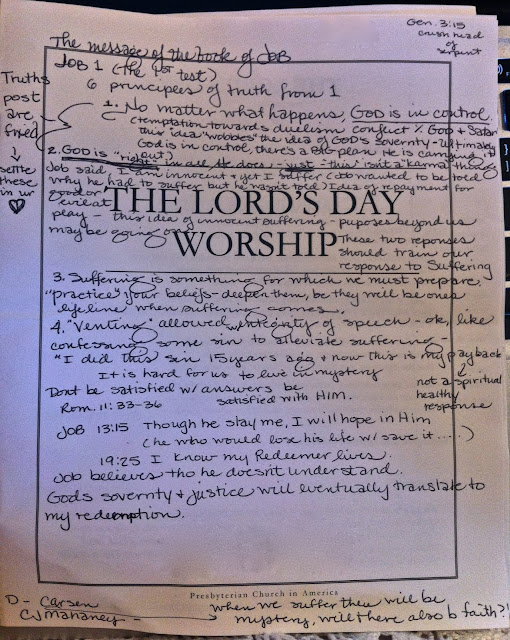 Gen. 3:15
crush head
of
serpent
The message of the book of JOB
JOB 1 (the 1st test)
6 principles of truth from 1
Truths
post
are
fixed
↓
settle
these
in ur
♡
1. No matter what happens, GOD is in control.
(temptation towards duelism conflict % God & Satan
this idea "wobbles" the idea of GOD'S soverntY - ultimately
God is in control, there's a BIG plan
2. GOD is "right" in all He does - just - this isn't a karma
Job said, I am innocent & yet I suffer (Job wanted to be told
why he had to suffer but he wasn't told) Idea of repayment for
Good or
evil at
play - this idea of innocent suffering - puposes beyond us
may be going on
THE LORD'S DAY
WORSHIP
These two reponses
should train our
response to Suffering
3. Suffering is something for which we must prepare.
"practice" your beliefs - deepen them, bc they will be ones
lifeline when suffering comes.
4. "Venting" allowed, integrity of speech - ok, like
confessing some sin to alleviate suffering -
"I did this sin 15 years ago & now this is my payback
↓
not a spiritual
healthy
response
It is hard for us to live in mystery
Dont be satisfied w/ answers be
satisfied with HIM.
Rom. 11:33-36
JOB 13:15 Though he slay me, I will hope in Him
(he who would lose his life w/ save it.....)
19:25 I know my Redeemer lives.
Job believes tho he doesn't understand.
Gods sovernty & justice will eventually translate to
my redemption.
Presbyterian Church in America
D - Carsen
CJ Mahaney - → when we suffer there will be
mystery, will there also b faith?!